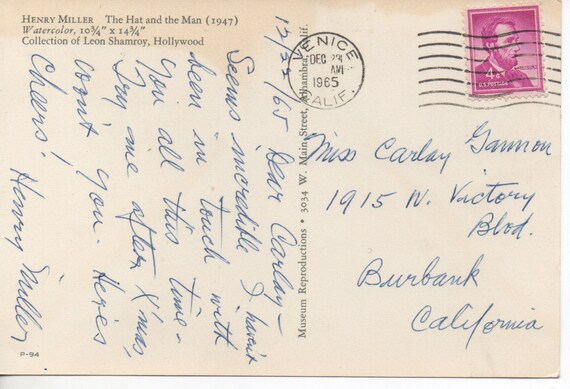 HENRY MILLER The Hat and the Man (1947)
Watercolor, 10¾" x 14¾"
Collection of Leon Shamroy, Hollywood
12/22/65 Dear Carlay—
Seems incredible I haven't
been in touch with
you all this time—
Try me after X'mas,
won't you. Here's
Cheers! Henry Miller
P-94
Museum Reproductions • 3034 W. Main Street, Alhambra, Calif.
VENICE
DEC 23
AM
1965
CALIF.
4¢
U.S. POSTAGE
Miss Carlay Gannon
1915 N. Victory
Blvd.
Burbank
California